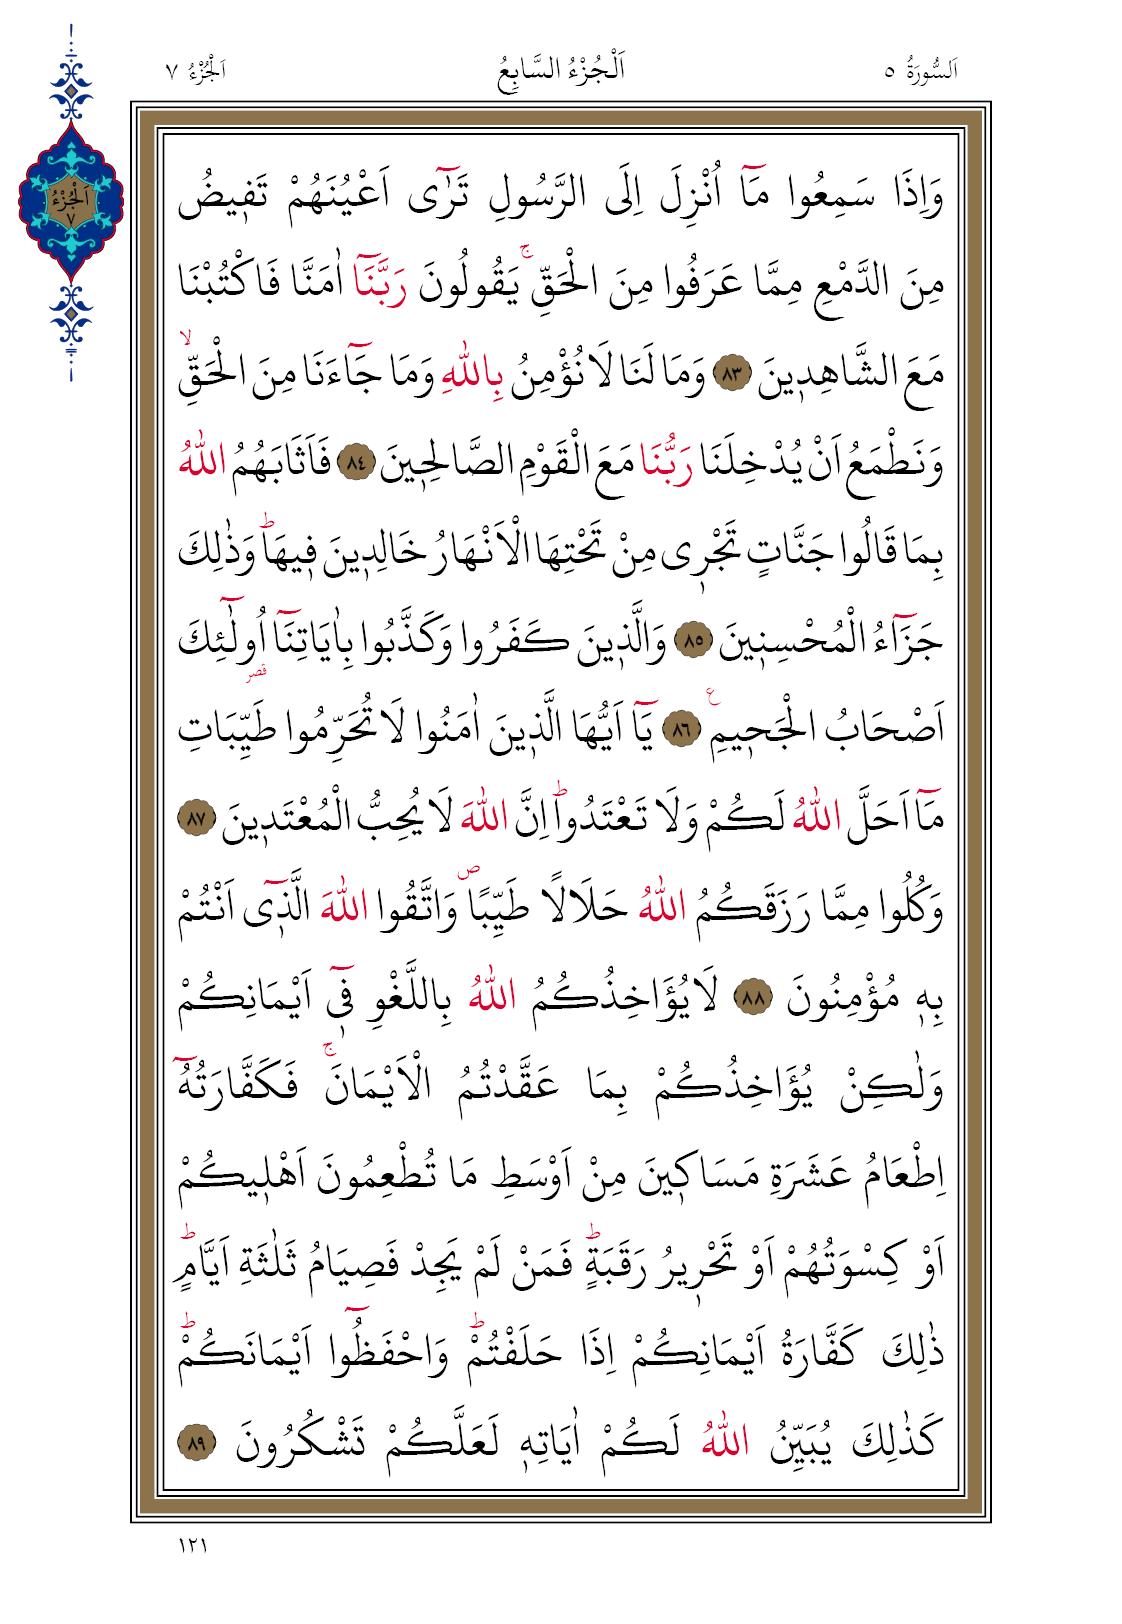 اَلسُّورَةُ ٥ اَلْجُزْءُ السَّابِعُ اَلْجُزْءُ ٧
اَلْجُزْءُ
٧
وَاِذَا سَمِعُوا مَٓا اُنْزِلَ اِلَى الرَّسُولِ تَرٰٓى اَعْيُنَهُمْ تَف۪يضُ
مِنَ الدَّمْعِ مِمَّا عَرَفُوا مِنَ الْحَقِّۚ يَقُولُونَ رَبَّنَٓا اٰمَنَّا فَاكْتُبْنَا
مَعَ الشَّاهِد۪ينَ ﴿٨٣﴾ وَمَا لَنَا لَا نُؤْمِنُ بِاللّٰهِ وَمَا جَٓاءَنَا مِنَ الْحَقِّۙ
وَنَطْمَعُ اَنْ يُدْخِلَنَا رَبُّنَا مَعَ الْقَوْمِ الصَّالِح۪ينَ ﴿٨٤﴾ فَاَثَابَهُمُ اللّٰهُ
بِمَا قَالُوا جَنَّاتٍ تَجْر۪ي مِنْ تَحْتِهَا الْاَنْهَارُ خَالِد۪ينَ ف۪يهَاۜ وَذٰلِكَ
جَزَٓاءُ الْمُحْسِن۪ينَ ﴿٨٥﴾ وَالَّذ۪ينَ كَفَرُوا وَكَذَّبُوا بِاٰيَاتِنَٓا اُو۬لٰٓئِكَ
اَصْحَابُ الْجَح۪يمِ۟ ﴿٨٦﴾ يَٓا اَيُّهَا الَّذ۪ينَ اٰمَنُوا لَا تُحَرِّمُوا طَيِّبَاتِ
مَٓا اَحَلَّ اللّٰهُ لَكُمْ وَلَا تَعْتَدُواۜ اِنَّ اللّٰهَ لَا يُحِبُّ الْمُعْتَد۪ينَ ﴿٨٧﴾
وَكُلُوا مِمَّا رَزَقَكُمُ اللّٰهُ حَلَالًا طَيِّبًاۖ وَاتَّقُوا اللّٰهَ الَّذ۪ٓي اَنْتُمْ
بِه۪ مُؤْمِنُونَ ﴿٨٨﴾ لَا يُؤَاخِذُكُمُ اللّٰهُ بِاللَّغْوِ ف۪ٓي اَيْمَانِكُمْ
وَلٰكِنْ يُؤَاخِذُكُمْ بِمَا عَقَّدْتُمُ الْاَيْمَانَۚ فَكَفَّارَتُهُٓ
اِطْعَامُ عَشَرَةِ مَسَاك۪ينَ مِنْ اَوْسَطِ مَا تُطْعِمُونَ اَهْل۪يكُمْ
اَوْ كِسْوَتُهُمْ اَوْ تَحْر۪يرُ رَقَبَةٍۜ فَمَنْ لَمْ يَجِدْ فَصِيَامُ ثَلٰثَةِ اَيَّامٍۜ
ذٰلِكَ كَفَّارَةُ اَيْمَانِكُمْ اِذَا حَلَفْتُمْۜ وَاحْفَظُٓوا اَيْمَانَكُمْۜ
كَذٰلِكَ يُبَيِّنُ اللّٰهُ لَكُمْ اٰيَاتِه۪ لَعَلَّكُمْ تَشْكُرُونَ ﴿٨٩﴾
١٢١